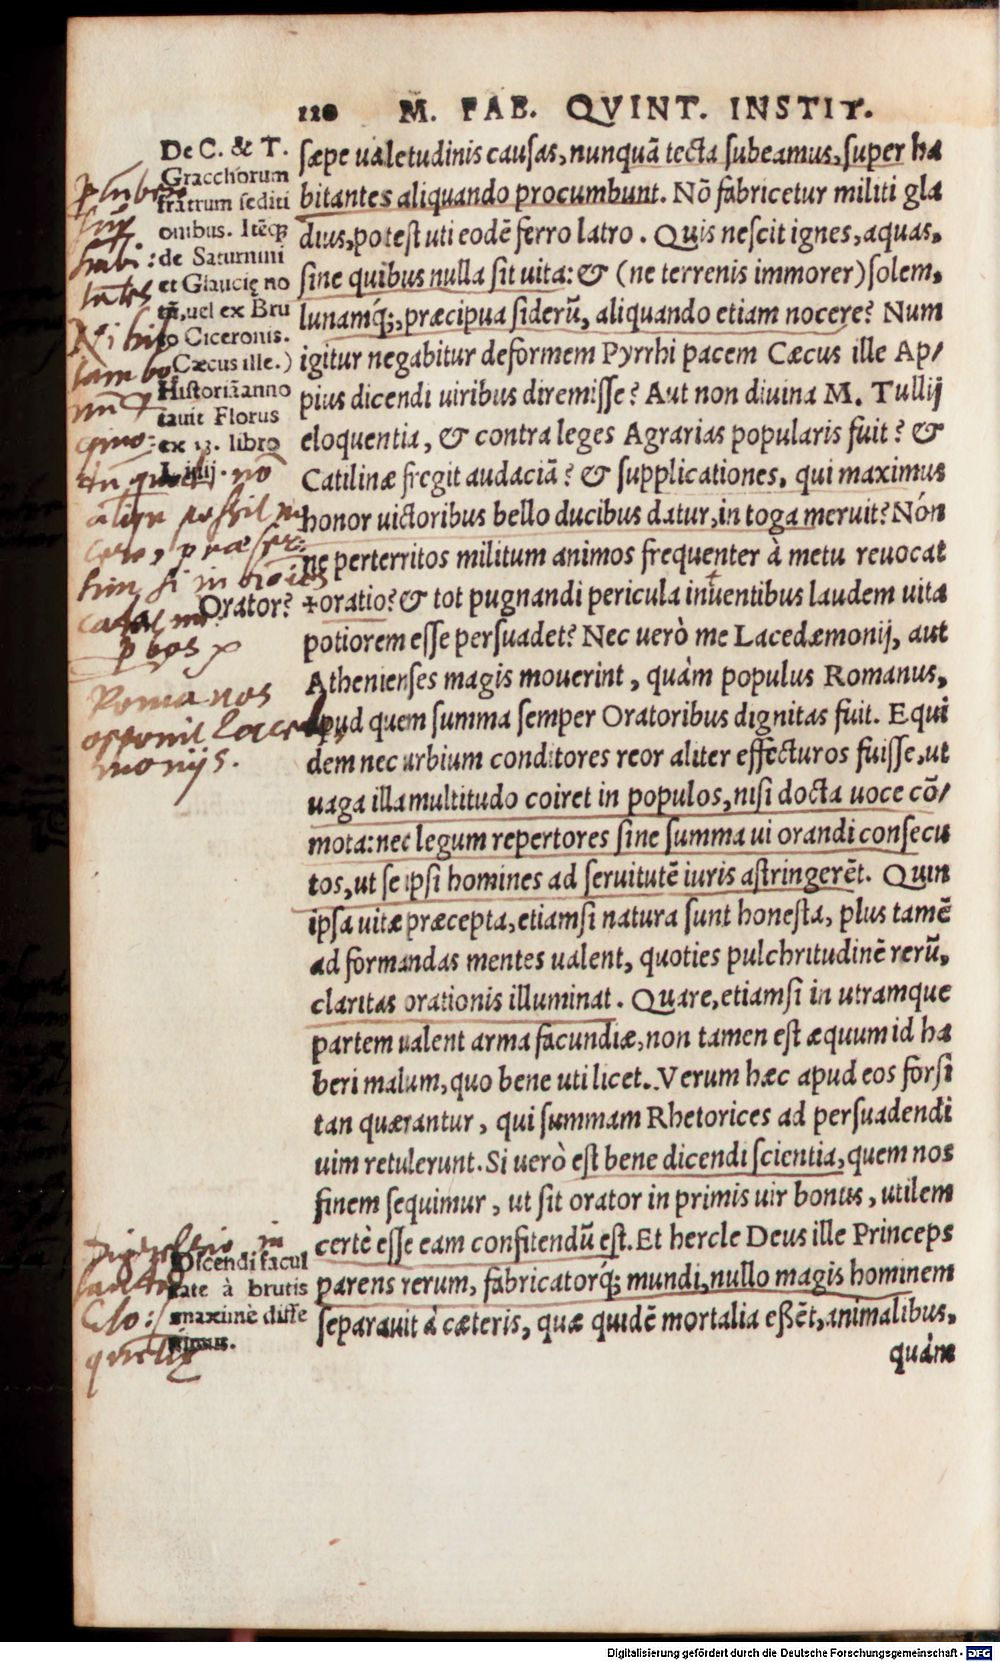 120 M. FAB. QVINT. INSTIT.
sæpe ualetudinis causas, nunquã tecta subeamus, super ha
bitantes aliquando procumbunt. Nõ fabricetur militi gla
dius, potest uti eodē ferro latro. Quis nescit ignes, aquas,
sine quibus nulla sit uita: & (ne terrenis immorer) solem,
lunamq́;, præcipua siderũ, aliquando etiam nocere? Num
igitur negabitur deformem Pyrrhi pacem Cæcus ille Ap/
pius dicendi uiribus diremisse? Aut non diuina M. Tullij
eloquentia, & contra leges Agrarias popularis fuit? &
Catilinæ fregit audaciã? & supplicationes, qui maximus
honor uictoribus bello ducibus datur, in toga meruit? Nón
ne perterritos militum animos frequenter à metu reuocat
+oratio? & tot pugnandi pericula inuentibus laudem uita
potiorem esse persuadet? Nec uerò me Lacedæmonij, aut
Athenienses magis mouerint, quàm populus Romanus,
apud quem summa semper Oratoribus dignitas fuit. Equi
dem nec urbium conditores reor aliter effecturos fuisse, ut
uaga illa multitudo coiret in populos, nisi docta uoce cõ/
mota: nec legum repertores sine summa ui orandi consecu
tos, ut se ipsi homines ad seruitutē iuris astringerēt. Quin
ipsa uitæ præcepta, etiamsi natura sunt honesta, plus tamē
ad formandas mentes ualent, quoties pulchritudinē rerũ,
claritas orationis illuminat. Quare, etiamsi in utramque
partem ualent arma facundiæ, non tamen est æquum id ha
beri malum, quo bene uti licet. Verum hæc apud eos forsi
tan quærantur, qui summam Rhetorices ad persuadendi
uim retulerunt. Si uerò est bene dicendi scientia, quem nos
finem sequimur, ut sit orator in primis uir bonus, utilem
certè esse eam confitendũ est. Et hercle Deus ille Princeps
parens rerum, fabricatorq́; mundi, nullo magis hominem
separauit à cæteris, quæ quidē mortalia eßēt, animalibus,
quàm
De C. & T.
Gracchorum
fratrum sediti
onibus. Itēq;
de Saturnini
et Glaucię no
tū, uel ex Bru
to Ciceronis.
Cæcus ille.)
Historiã anno
tauit Florus
ex 13. libro
Liuij.
Orator?
Romanos
opponit Lacede
monijs.
Dicendi facul
tate à brutis
maximè diffe
rimus.
Digitalisierung gefördert durch die Deutsche Forschungsgemeinschaft - DFG